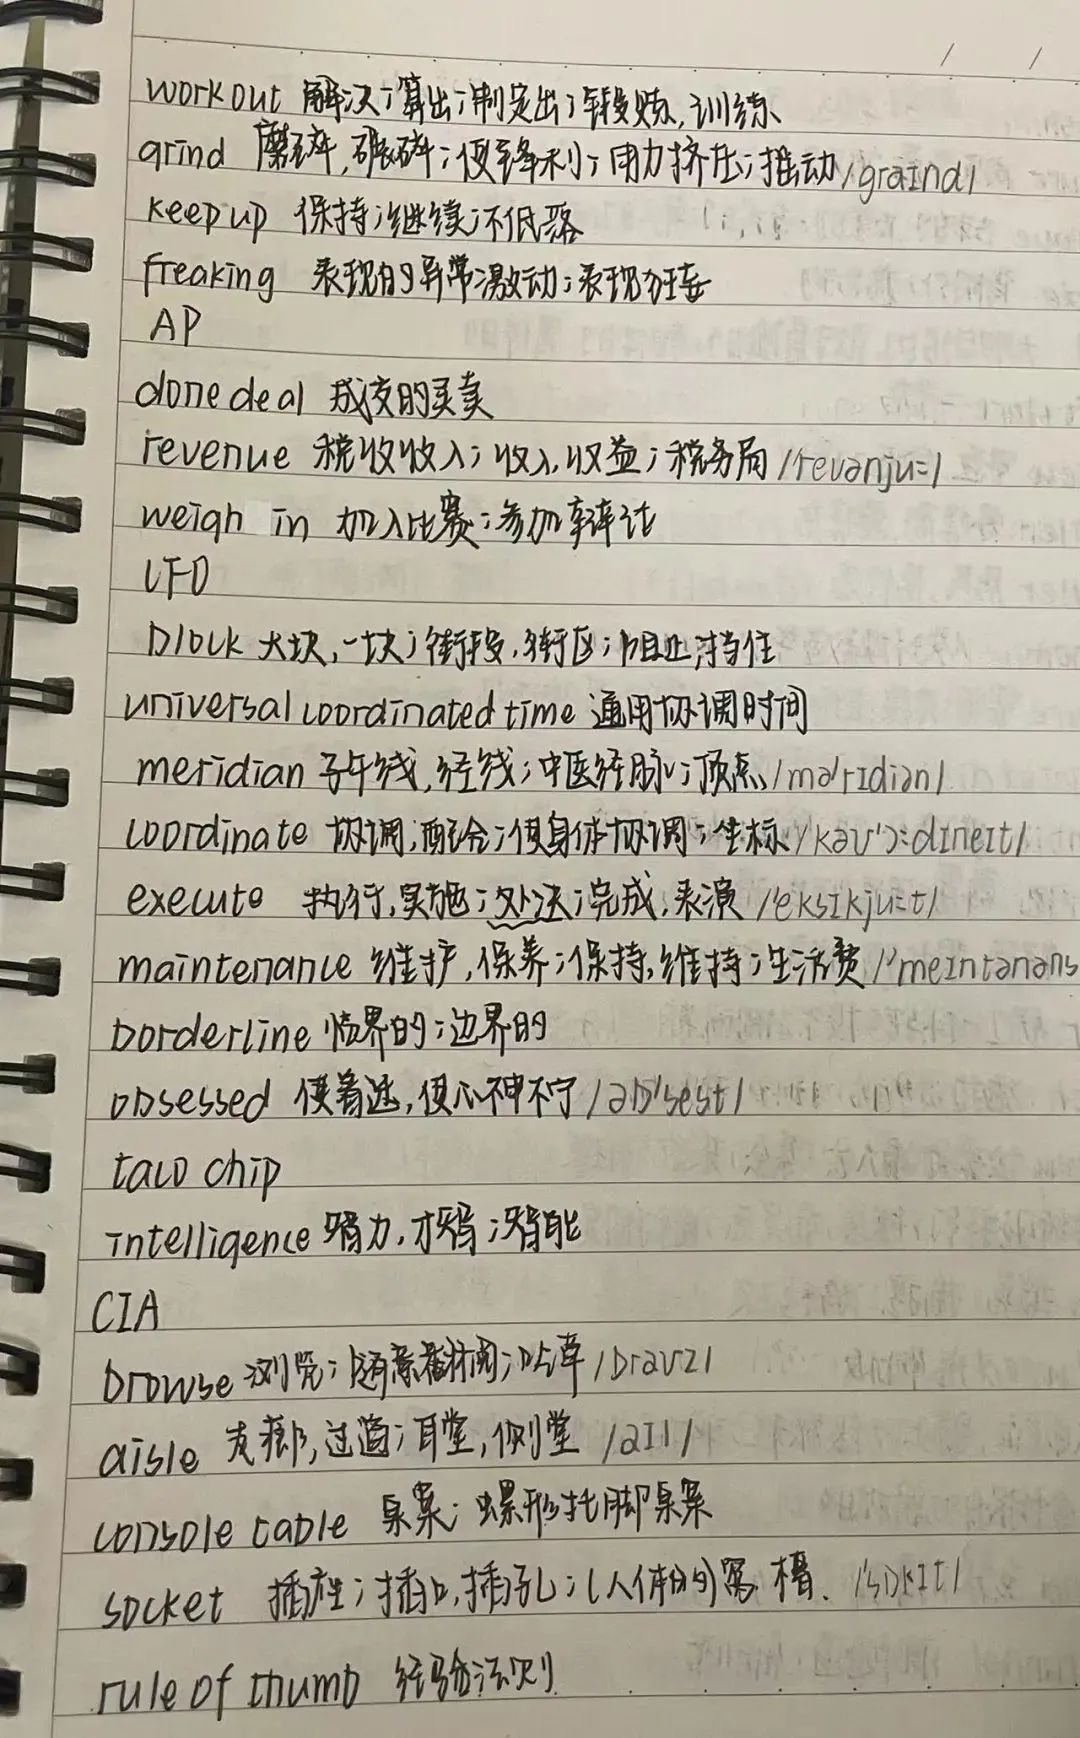 workout 解决;算出;制定出;锻炼,训练
grind 磨碎,碾碎;使锋利;用力挤压;推动/graɪnd/
keep up 保持;继续;不低落
freaking 表现的异常激动;表现狂妄
AP
done deal 成交的买卖
revenue 税收收入;收入,收益;税务局/revənjuː/
weigh in 加入比赛;参加辩论
UFO
block 大块,一块;街段,街区;阻止,挡住
universal coordinated time 通用协调时间
meridian 子午线,经线;中医经脉;顶点/məˈrɪdiən/
coordinate 协调,配合;使身体协调;坐标/kəʊˈɔːdɪneɪt/
execute 执行,实施;处决;完成,表演 /eksɪkjuːt/
maintenance 维护,保养;保持,维持;生活费/ˈmeɪntənəns
borderline 临界的;边界的
obsessed 使着迷,使心神不宁/əbˈsest/
taco chip
intelligence 智力,才智;智能
CIA
browse 浏览;随意翻阅;吃草/braʊz/
aisle 走廊,过道;耳堂,侧堂 /aɪl/
console table 桌案;螺形托脚桌案
socket 插座;插口,插孔;(人体的)窝,槽. /ˈsɒkɪt/
rule of thumb 经验法则